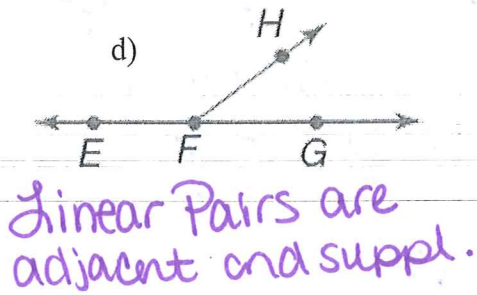 H
d)
E F G
Linear Pairs are
adjacent and suppl.